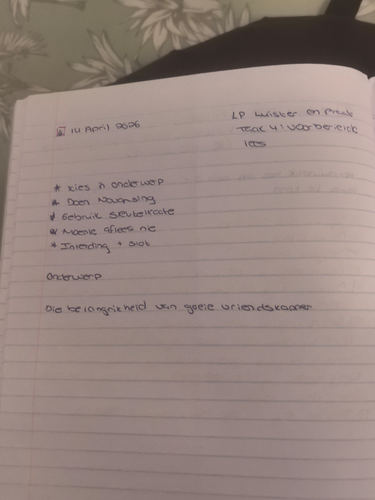 14 April 2026
LP Luister en Praat
Taak 4: Voorbereide
lees
* Kies 'n onderwerp
* Doen Navorsing
* Gebruik sleutelkaarte
* Moenie aflees nie
* Inleiding + slot
Onderwerp
Die belangrikheid van goeie vriendskappe